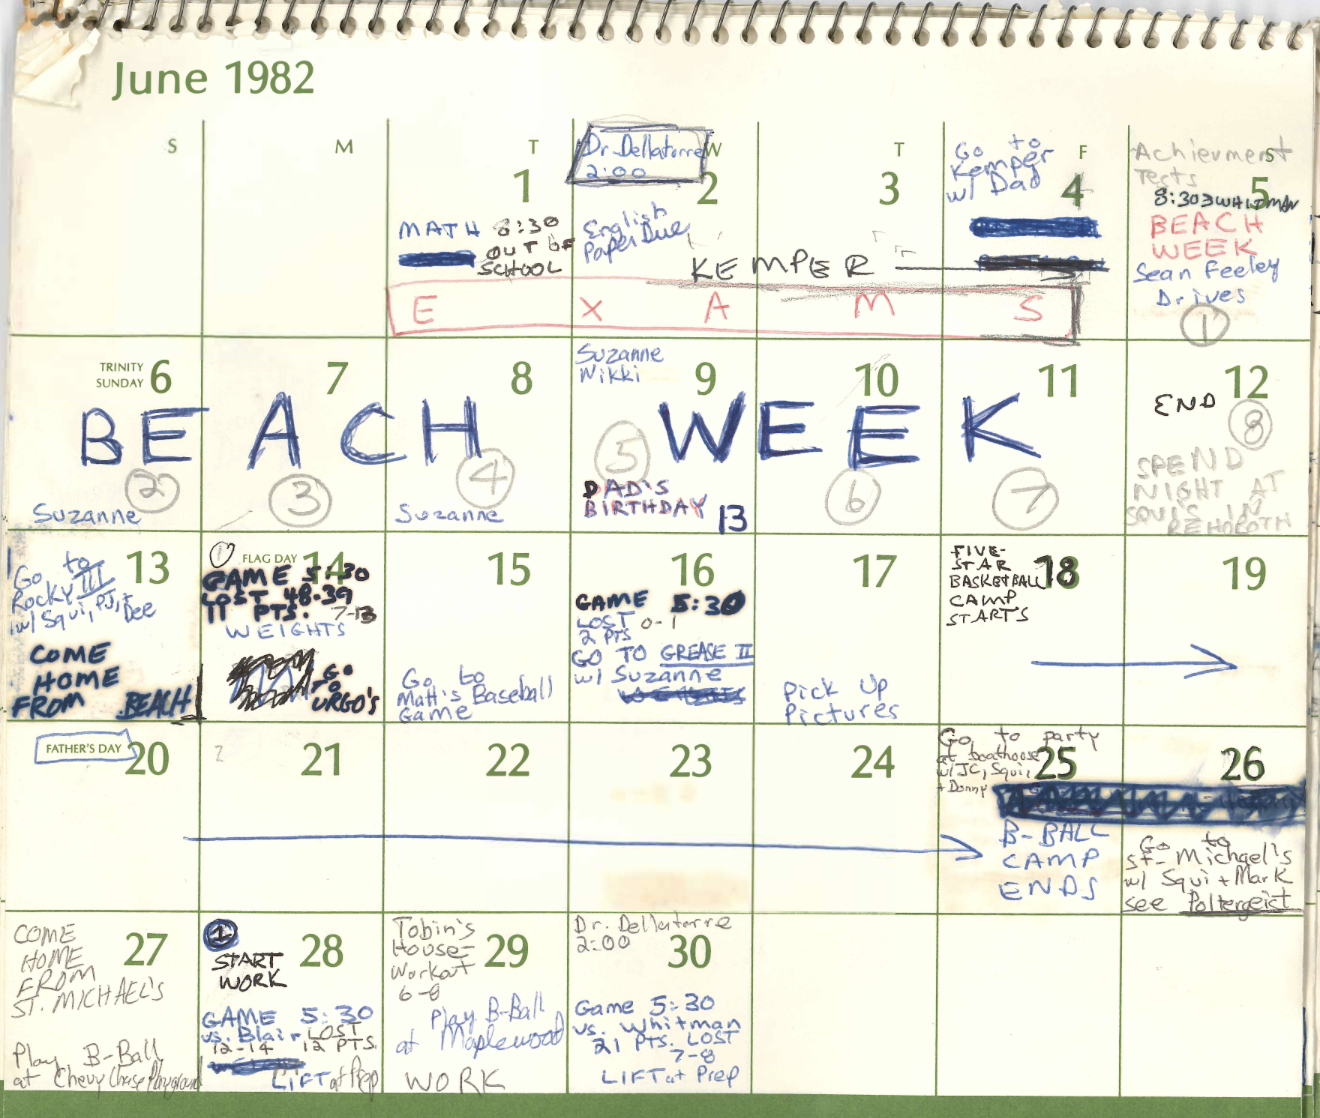 June 1982
S
M
T
W
T
F
S
1
MATH 8:30
OUT OF
SCHOOL
Dr. Dellatorre
2:00
2
English
Paper Due
3
KEMPER
Go to
Kemper
w/ Dad
4
Achievment
Tests
5
8:30 WHITMAN
BEACH
WEEK
Sean Feeley
Drives
1
E X A M S
TRINITY
SUNDAY 6
7
8
Suzanne
Nikki
9
10
11
12
BEACH WEEK
END
2
3
4
5
6
7
8
Suzanne
Suzanne
DAD'S
BIRTHDAY
13
SPEND
NIGHT AT
SQUI'S IN
REHOBOTH
13
Go to
Rocky III
w/ Squi, PJ, +
Dee
COME
HOME
FROM BEACH
1
FLAG DAY 14
GAME 5:30
LOST 48-39
11 PTS. 7-13
WEIGHTS
GO
TO
URGO'S
15
Go to
Matt's Baseball
Game
16
GAME 5:30
LOST 0-1
2 PTS
GO TO GREASE II
w/ Suzanne
17
Pick Up
Pictures
18
FIVE-
STAR
BASKETBALL
CAMP
START'S
19
FATHER'S DAY 20
2
21
22
23
24
Go to party
at boathouse
w/ JC, Squi,
+ Donny
25
B-BALL
CAMP
ENDS
26
Go to
St. Michael's
w/ Squi + Mark
see Poltergeist
COME
HOME
FROM
ST. MICHAEL'S
27
Play B-Ball
at Chevy Chase Playground
1
28
START
WORK
GAME 5:30
vs. Blair LOST
12-14 12 PTS.
LIFT at Prep
Tobin's
House-
Workout
6-8
29
Play B-Ball
at Maplewood
WORK
Dr. Dellatorre
2:00
30
Game 5:30
vs. Whitman
21 PTS. LOST
7-8
LIFT at Prep